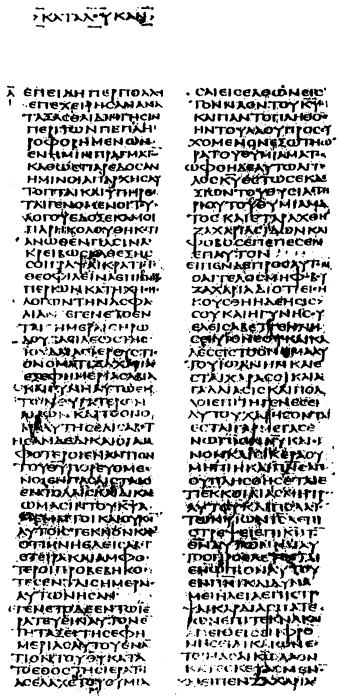 ΚΑΤΑΛΟΥΚΑΝ
Α ΕΠΕΙΔΗΠΕΡΠΟΛΛΟΙ
ΕΠΕΧΕΙΡΗϹΑΝΑΝΑ
ΤΑΞΑϹΘΑΙΔΙΗΓΗϹΙΝ
ΠΕΡΙΤΩΝΠΕΠΛΗ
ΡΟΦΟΡΗΜΕΝΩΝ
ΕΝΗΜΙΝΠΡΑΓΜΑΤ
ΚΑΘΩϹΠΑΡΕΔΟϹΑΝ
ΗΜΙΝΟΙΑΠΑΡΧΗϹΑΥ
ΤΟΠΤΑΙΚΑΙΥΠΗΡΕ
ΤΑΙΓΕΝΟΜΕΝΟΙΤΟΥ
ΛΟΓΟΥΕΔΟΞΕΚΑΜΟΙ
ΠΑΡΗΚΟΛΟΥΘΗΚΟΤΙ
ΑΝΩΘΕΝΠΑϹΙΝΑ
ΚΡΕΙΒΩϹΚΑΘΕΞΗϹ
ϹΟΙΓΡΑΨΑΙΚΡΑΤΙ
ΘΕΟΦΙΛΕΙΝΑΕΠΙΓΝ
ΠΕΡΙΩΝΚΑΤΗΧΗ
ΛΟΓΩΝΤΗΝΑϹΦΑ
ΛΙΑΝ ΕΓΕΝΕΤΟΕΝ
ΤΑΙϹΗΜΕΡΑΙϹΗΡΩ
ΔΟΥΒΑϹΙΛΕΩϹΤΗϹ
ΙΟΥΔΑΙΑϹΙΕΡΕΥϹΤΙ
ΟΝΟΜΑΤΙΖΑΧΑΡΙΑϹ
ΕΞΕΦΗΜΕΡΙΑϹΑΒΙΑ
ΚΑΙΓΥΝΗΑΥΤΩΕΚ
ΤΩΝΘΥΓΑΤΕΡΩΝ
ΑΑΡΩΝΚΑΙΤΟΟΝΟ
ΜΑΑΥΤΗϹΕΛΙϹΑΒΕΤ
ΗϹΑΝΔΕΔΙΚΑΙΟΙΑΜ
ΦΟΤΕΡΟΙΕΝΑΝΤΙΟΝ
ΤΟΥΘΥΠΟΡΕΥΟΜΕ
ΝΟΙΕΝΠΑϹΑΙϹΤΑΙϹ
ΕΝΤΟΛΑΙϹΚΑΙΔΙΚΑΙ
ΩΜΑϹΙΝΤΟΥΚΥΑ
ΜΕΜΠΤΟΙΚΑΙΟΥΚΗ
ΑΥΤΟΙϹΤΕΚΝΟΝΚΑΘ
ΟΤΙΗΝΗΕΛΕΙϹΑΒΕΤ
ϹΤΕΙΡΑΚΑΙΑΜΦΟ
ΤΕΡΟΙΠΡΟΒΕΒΗΚΟ
ΤΕϹΕΝΤΑΙϹΗΜΕΡΑΙϹ
ΑΥΤΩΝΗϹΑΝ
ΕΓΕΝΕΤΟΔΕΕΝΤΩΙΕ
ΡΑΤΕΥΕΙΝΑΥΤΟΝΕ
ΤΗΤΑΞΕΙΤΗϹΕΦΗ
ΜΕΡΙΑϹΑΥΤΟΥΕΝΑ
ΤΙΟΝΤΟΥΘΥΚΑΤΑ
ΤΟΕΘΟϹΤΗϹΙΕΡΑΤΙ
ΑϹΕΛΑΧΕΤΟΥΘΥΜΙΑ
ϹΑΙΕΙϹΕΛΘΩΝΕΙϹ
ΤΟΝΝΑΟΝΤΟΥΚΥ
ΚΑΙΠΑΝΤΟΠΛΗΘΟ
ΗΝΤΟΥΛΑΟΥΠΡΟϹΕΥ
ΧΟΜΕΝΟΝΕΞΩΤΗΩ
ΡΑΤΟΥΘΥΜΙΑΜΑΤ
ΩΦΘΗΔΕΑΥΤΩΑΓΓΕ
ΛΟϹΚΥΕϹΤΩϹΕΚΔΕ
ΞΙΩΝΤΟΥΘΥϹΙΑϹΤΗ
ΡΙΟΥΤΟΥΘΥΜΙΑΜΑ
ΤΟϹΚΑΙΕΤΑΡΑΧΘΗ
ΖΑΧΑΡΙΑϹΙΔΩΝΚΑΙ
ΦΟΒΟϹΕΠΕΠΕϹΕΝ
ΕΠΑΥΤΟΝ
ΕΙΠΕΝΔΕΠΡΟϹΑΥΤΟ
ΟΑΓΓΕΛΟϹΜΗΦΟΒΟΥ
ΖΑΧΑΡΙΑΔΙΟΤΙΕΙϹΗ
ΚΟΥϹΘΗΗΔΕΗϹΙϹ
ϹΟΥΚΑΙΗΓΥΝΗϹΟΥ
ΕΛΕΙϹΑΒΕΤΓΕΝΝΗ
ϹΕΙΥΙΟΝϹΟΙΚΑΙΚΑ
ΛΕϹΕΙϹΤΟΟΝΟΜΑΑΥ
ΤΟΥΙΩΑΝΝΗΝΚΑΙΕ
ϹΤΑΙΧΑΡΑϹΟΙΚΑΙΑ
ΓΑΛΛΙΑϹΙϹΚΑΙΠΟΛ
ΛΟΙΕΠΙΤΗΓΕΝΕϹΕΙ
ΑΥΤΟΥΧΑΡΗϹΟΝΤΑΙ
ΕϹΤΑΙΓΑΡΜΕΓΑϹΕ
ΝΩΠΙΟΝΚΥΚΑΙΟΙ
ΝΟΝΚΑΙϹΙΚΕΡΑΟΥ
ΜΗΠΙΗΚΑΙΠΝϹΑΓΙ
ΟΥΠΛΗϹΘΗϹΕΤΑΙΕ
ΤΙΕΚΚΟΙΛΙΑϹΜΗΤΡ
ΑΥΤΟΥΚΑΙΠΟΛΛΟΥϹ
ΤΩΝΥΙΩΝΙϹΛΕΠΙ
ϹΤΡΕΨΕΙΕΠΙΚΝΤ
ΘΝΑΥΤΩΝΚΑΙΑΥ
ΤΟϹΠΡΟΕΛΕΥϹΕΤΑΙ
ΕΝΩΠΙΟΝΑΥΤΟΥ
ΕΝΠΝΙΚΑΙΔΥΝΑ
ΜΕΙΗΛΕΙΑΕΠΙϹΤΡΕ
ΨΑΙΚΑΡΔΙΑϹΠΑΤΕ
ΡΩΝΕΠΙΤΕΚΝΑΚΑΙ
ΑΠΕΙΘΕΙϹΕΝΦΡΟ
ΝΗϹΕΙΔΙΚΑΙΩΝΕ
ΤΟΙΜΑϹΑΙΚΩΛΑΟΝ
ΚΑΤΕϹΚΕΥΑϹΜΕΝ
ΚΑΙΕΙΠΕΝΖΑΧΑΡΙΑ